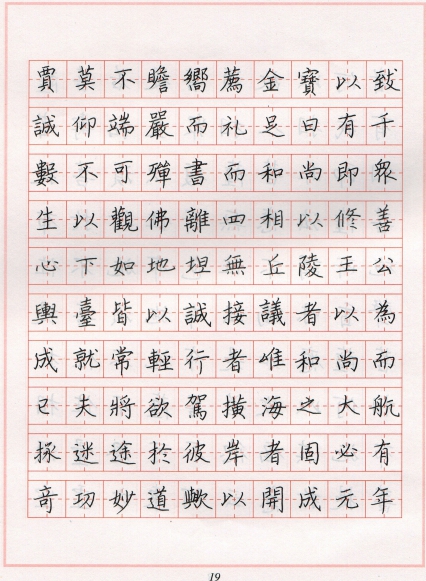 賈莫不瞻嚮薦金寶以致
誠仰端嚴而礼足日有千
數不可殫書而和尚即眾
生以觀佛離四相以修善
心下如地坦無丘陵王公
輿臺皆以誠接議者以為
成就常輕行者唯和尚而
已夫將欲駕橫海之大航
拯迷途於彼岸者固必有
奇功妙道歟以開成元年
19